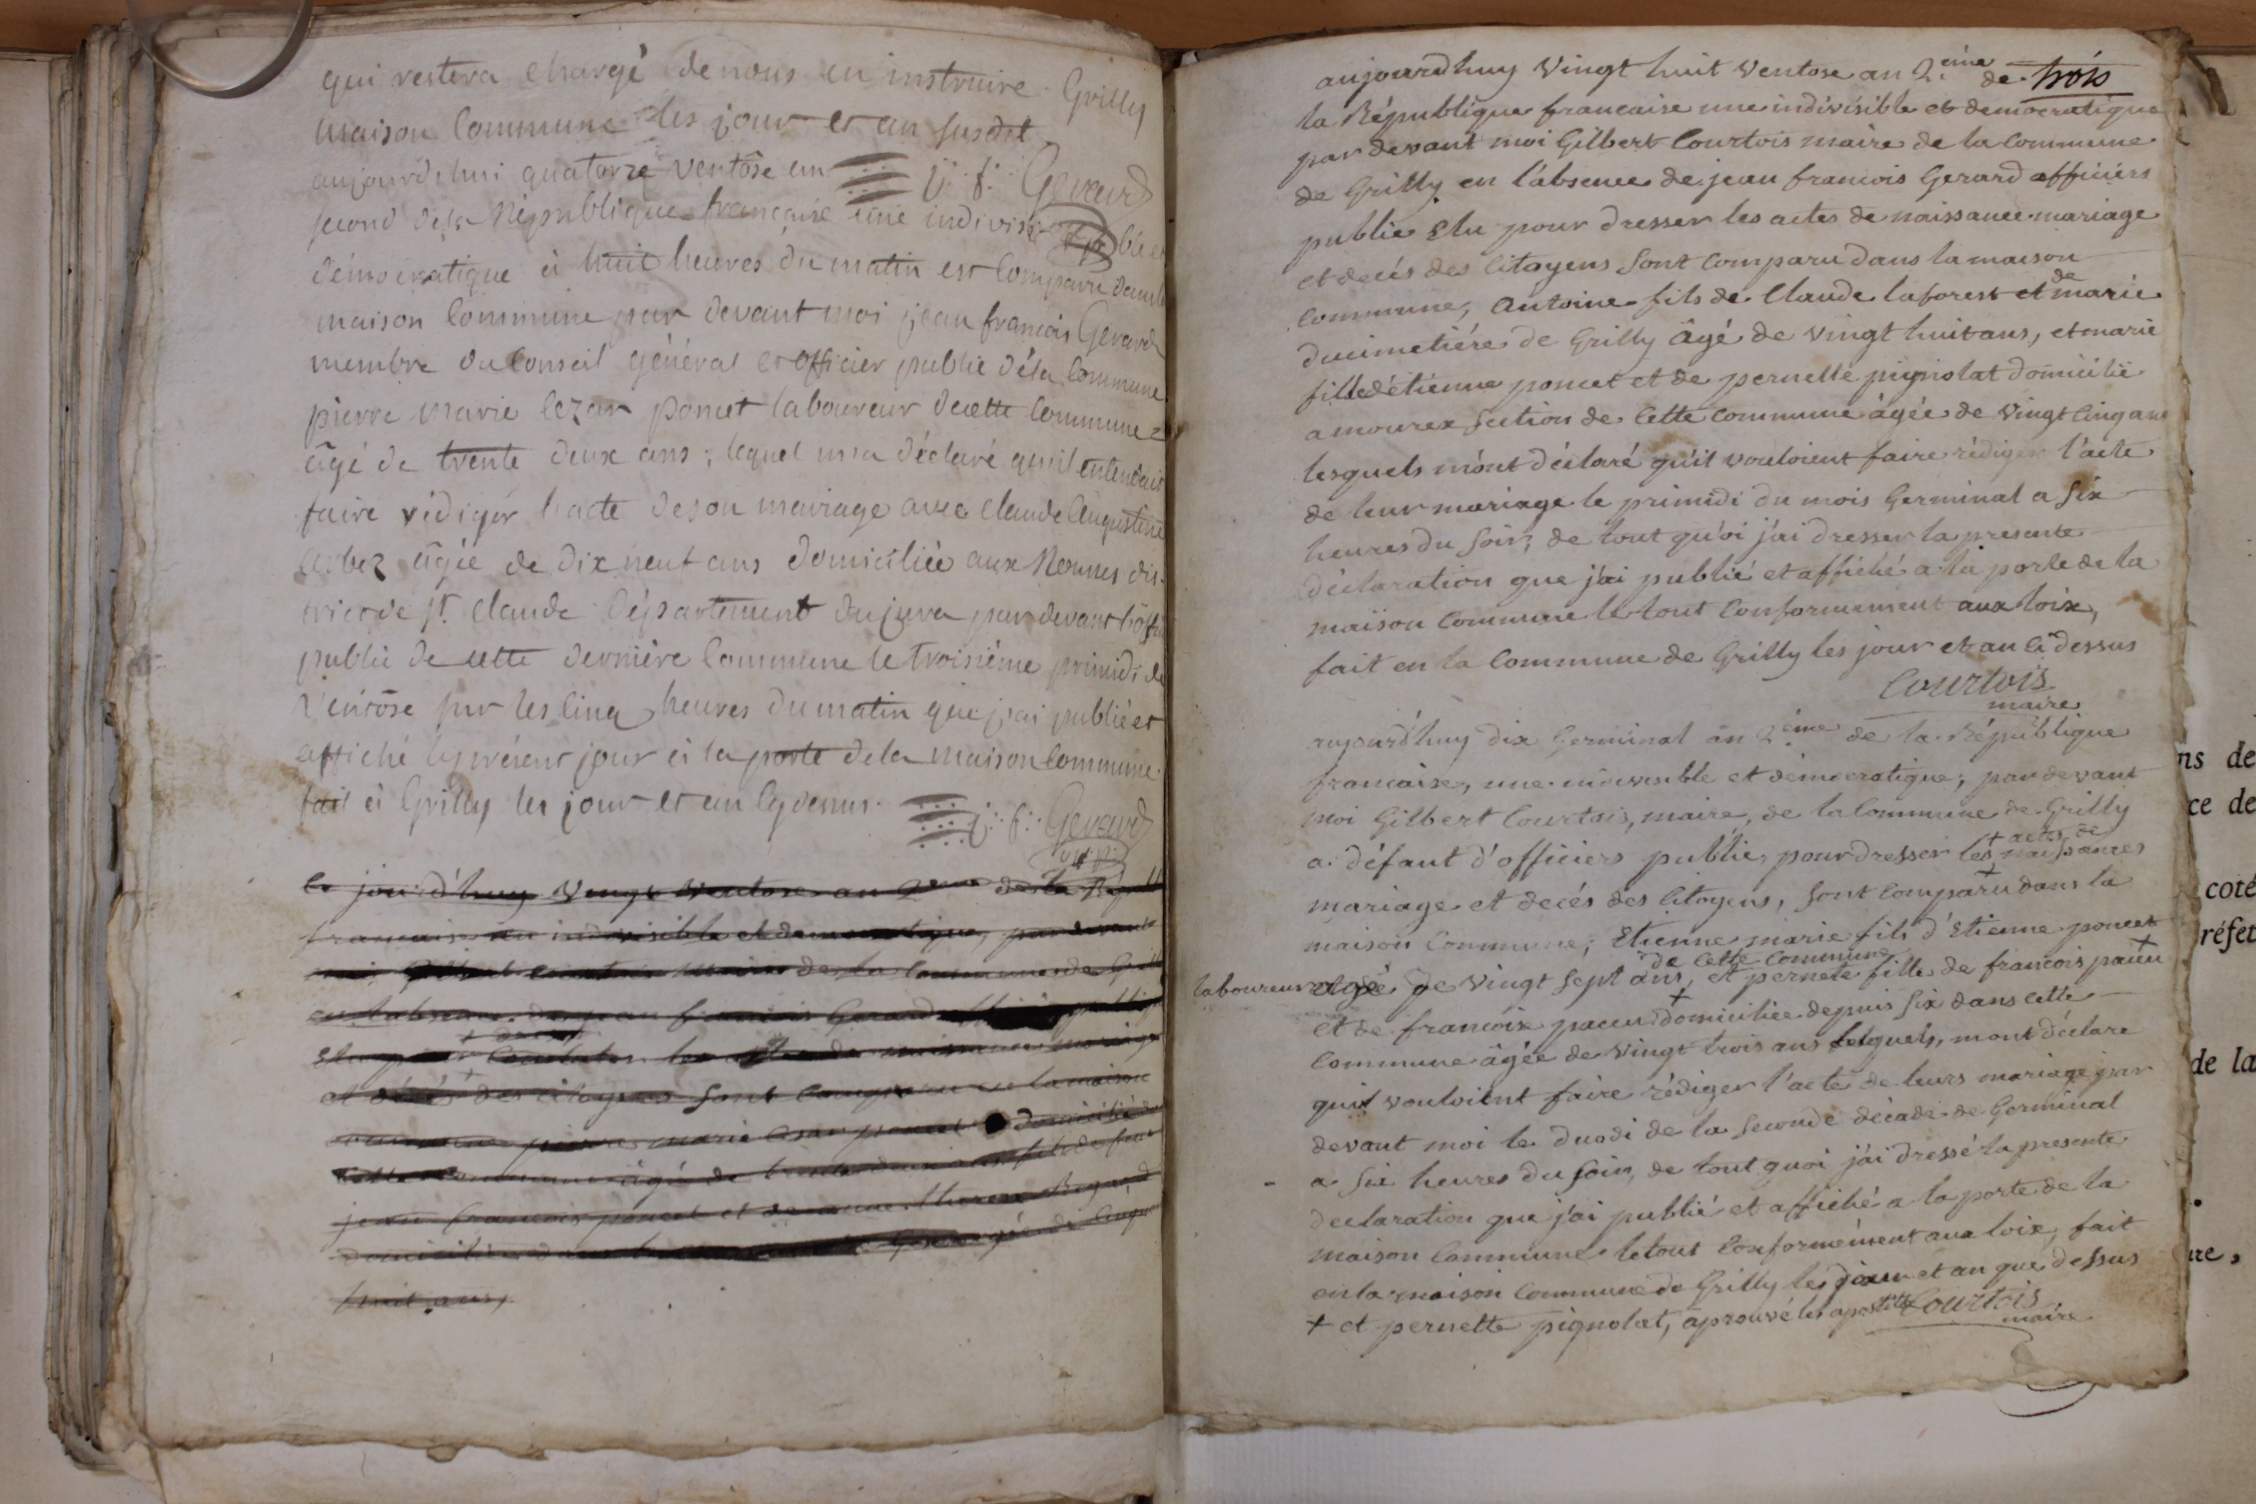 qui restera chargé de nous en instruire. Grilly
maison Commune les jour et an susdit
j: f: Gerard
aujourdehui quatorze ventôse an
second dela République française une indivisible et
démocratique à huit heures du matin est Comparu dans la
maison Commune par devant moi jean francois Gerard
membre du Conseil général et officier public déla Commune
pierre marie Cezar poncet laboureur decette Commune
âgé de trente deux ans; lequel ma déclaré qu'il entendait
faire rédiger l'acte deson mariage avec claude Augustine
âgée de dix neuf ans domiciliée aux Rousses dis-
trict de St. Claude Département du jura par devant l'offi
public de cette dernière Commune le troisième primidi de
Ventôse sur les Cinq heures du matin que j'ai publié et
affiché le présent jour à la porte dela maison Commune.
fait à Grilly les jour et an cy dessus.
j: f: Gerard
ce jour d'huy Vingt Ventose an 2eme de la Répu
francaise indivisible et democratique, par devant
moi Gilbert Courtois maire de la Commune de Grilly
en l'absence de jean francois Gerard officier public
Elu pour les actes de naissance mariage
et décés des citoyens sont Comparu en la maison
commune pierre marie Cesar poncet domicilié
cette Commune âgé de trente deux ans fils de feu
jean francois poncet et de anne therese
domiciliée âgée de
huit ans,
trois
aujourdhuy Vingt huit Ventose an 2.eme de
la République francaise une indivisible et democratique
par devant moi Gilbert Courtois maire de la Commune
de Grilly en l'absence de jean francois Gerard officiers
public Elu pour dresser les actes de naissance mariage
et decés des Citoyens sont Comparu dans la maison
Commune, Antoine fils de Claude laforest et de marie
ducimetiére de Grilly âgé de vingt huit ans, et marie
fille détienne poncet et de pernette pignolat domicilié
a mourex section de Cette commune âgée de Vingt Cinq ans
lesquels m'ont déclaré qu'il vouloient faire rédiger l'acte
de leur mariage le primidi du mois Germinal a six
heures du soir, de tout qu'oi j'ai dresser la presente
déclaration que j'ai publié et affiché a la porte de la
maison Commune le tout Conformement aux loix,
fait en la Commune de Grilly les jour et an Ci dessus
Courtois
maire
aujourd'huy dix Germinal an 2.éme de la République
francaise, une indivisible et démocratique, par devant
moi Gilbert Courtois, maire, de la Commune de Grilly
+ actes de
a défaut d'officiers public, pour dresser les naissances
mariage et decés des Citoyens, sont Comparu dans la
maison Commune, Etienne marie fils d'Etienne poncet +
de cette commune
laboureur âgé de vingt sept ans, et pernete fille de francois pacuu
et de francoise pacuu domiciliée depuis six dans cette
Commune âgée de vingt trois ans lesquels, mont déclare
quil vouloient faire rédiger l'acte de leurs mariage par
devant moi le duodi de la seconde décade de Germinal
a six heures du soir, de tout quoi j'ai dressé la presente
declaration que j'ai publié et affiché a la porte de la
maison Commune le tout Conformément aux loix, fait
en la maison Commune de Grilly les jour et an que dessus
+ et pernette pignolat, aprouvé les apostille Courtois
maire
ns de
ce de
coté
réfet
de la
ure,